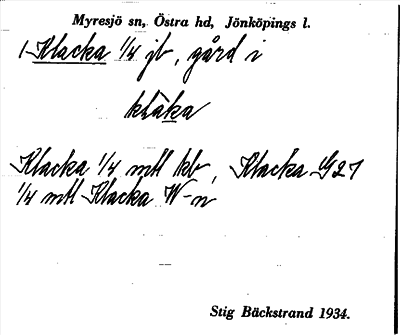 Myresjö sn, Östra hd, Jönköpings l.
1 Klacka 1/4 jb, gård i
klàka
Klacka 1/4 mtl kb, Klacka G 27
1/4 mtl Klacka W-n
Stig Bäckstrand 1934.